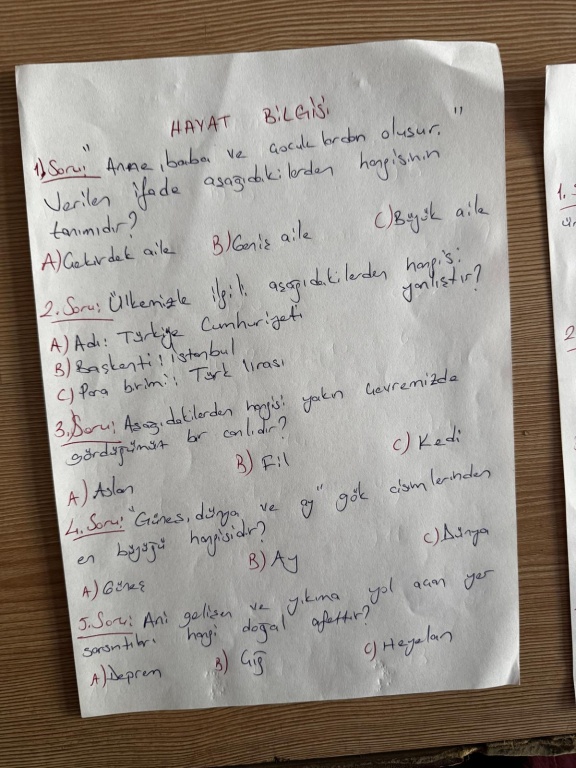 HAYAT BİLGİSİ
1) Soru: "Anne, baba ve çocuklardan oluşur."
Verilen ifade aşağıdakilerden hangisinin
tanımıdır?
A) Çekirdek aile B) Geniş aile C) Büyük aile
2. Soru: Ülkemizle ilgili aşağıdakilerden hangisi
yanlıştır?
A) Adı: Türkiye Cumhuriyeti
B) Başkenti: İstanbul
C) Para birimi: Türk lirası
3. Soru: Aşağıdakilerden hangisi yakın çevremizde
gördüğümüz bir canlıdır?
A) Aslan B) Fil C) Kedi
4. Soru: "Güneş, dünya ve ay" gök cisimlerinden
en büyüğü hangisidir?
A) Güneş B) Ay C) Dünya
5. Soru: Ani gelişen ve yıkıma yol açan yer
sarsıntıları hangi doğal afettir?
A) Deprem B) Çığ C) Heyelan
1.
2